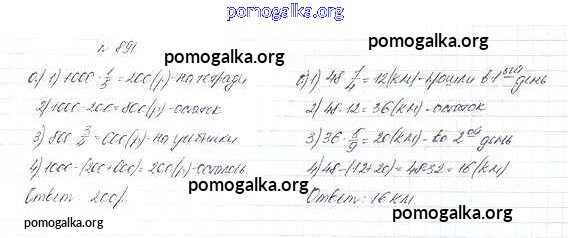 pomogalka.org
№ 891
pomogalka.org
pomogalka.org
а) 1) 1000 · 1/5 = 200 (р) - на тетради
2) 1000 - 200 = 800 (р) - остаток
3) 800 · 3/4 = 600 (р) - на учебники
4) 1000 - (200 + 600) = 200 (р) - осталось
Ответ: 200 р.
б) 1) 48 · 1/4 = 12 (км) - прошли в 1 ый день
2) 48 - 12 = 36 (км) - остаток
3) 36 · 5/9 = 20 (км) - во 2 ой день
4) 48 - (12 + 20) = 48 - 32 = 16 (км)
Ответ: 16 км.
pomogalka.org
pomogalka.org
pomogalka.org